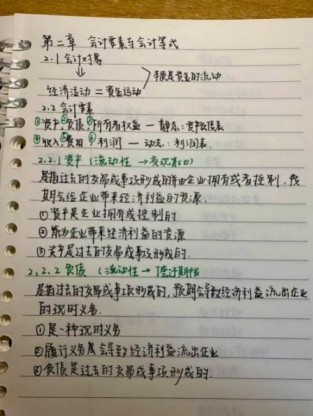 第二章 会计要素与会计等式
2.1 会计对象
↓ 本质是资金的流动
经济活动 = 资金运动
2.2 会计要素
①资产,②负债,③所有者权益 — 静态:资产负债表
④收入⑤费用⑥利润 — 动态:利润表
2.2.1 资产 (流动性 → 变现
是指过去的交易或事项形成的并由企业拥有或者控制,预
期会给企业带来经济利益的资源.
①资产是企业拥有或控制的
②能为企业带来经济利益的资源
③资产是过去的交易或事项形成的.
2.2.2 负债 (流动性 → 偿还期
是指过去的交易或事项形成的,预期会导致经济利益流出企业
的现时义务.
①是一种现时义务
②履行义务是会导致经济利益流出企业
③负债是过去的交易或事项形成的.